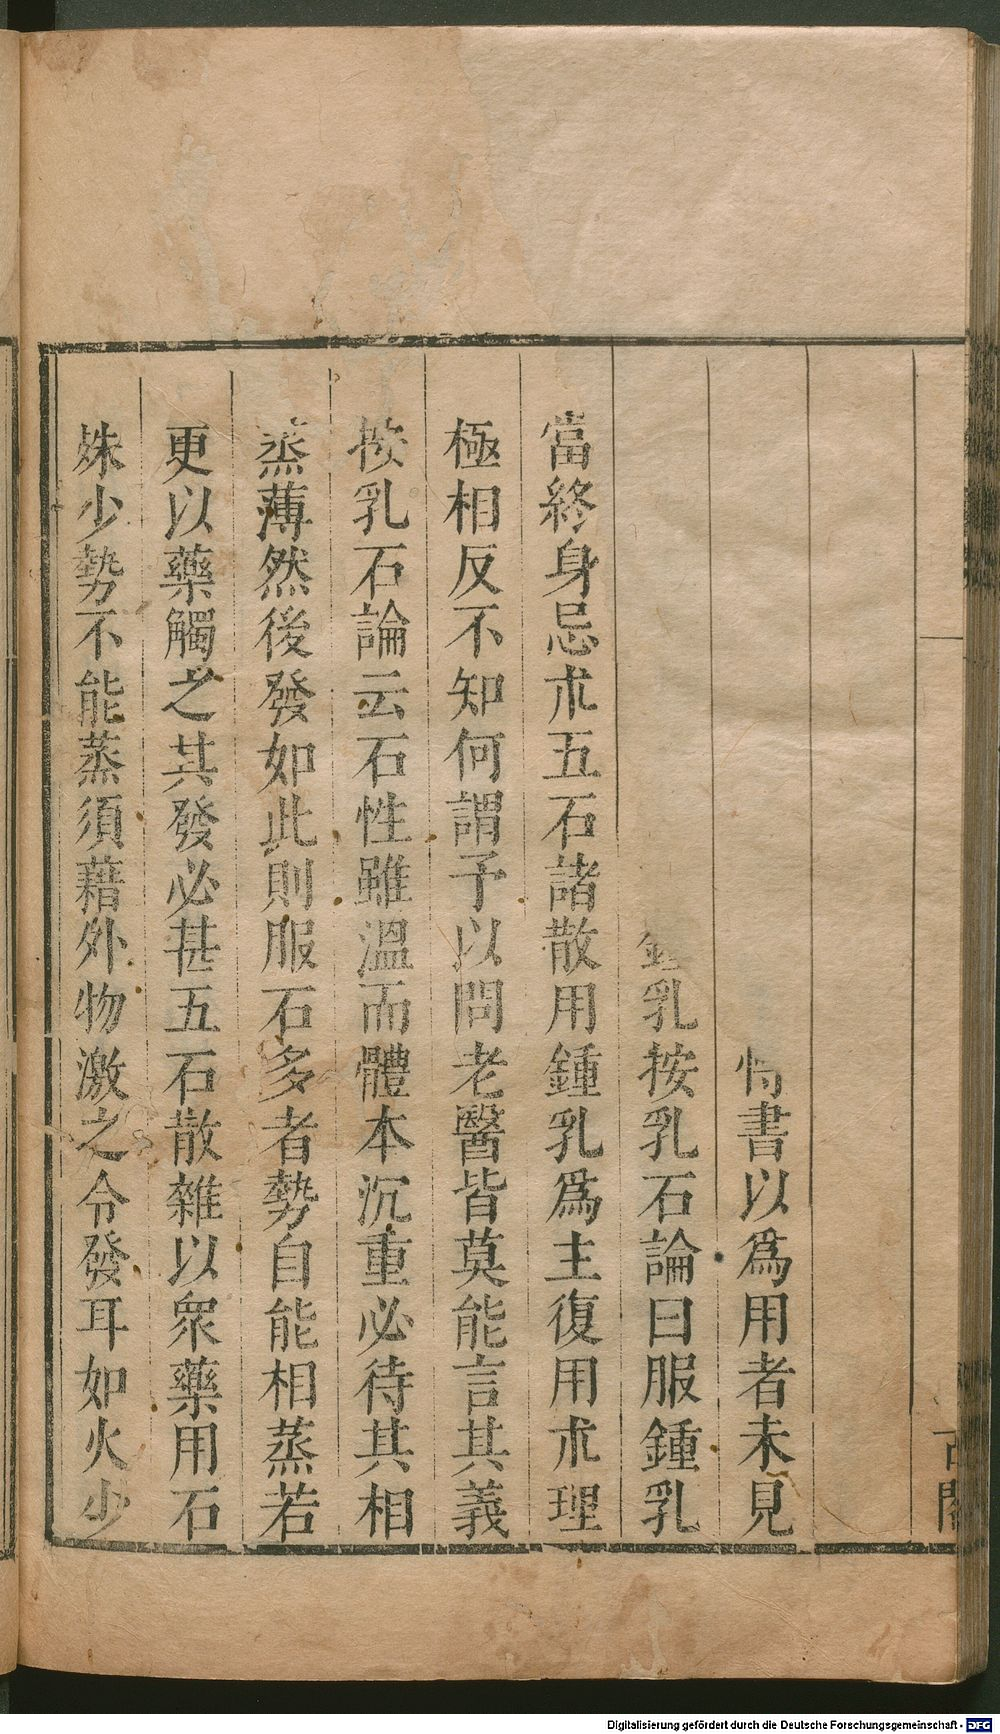 書以爲用者未見
乳按乳石論曰服鍾乳
當終身忌朮五石諸散用鍾乳爲主復用朮理
極相反不知何謂予以問老醫皆莫能言其義
按乳石論云石性雖溫而體本沉重必待其相
蒸薄然後發如此則服石多者勢自能相蒸若
更以藥觸之其發必甚五石散雜以衆藥用石
殊少勢不能蒸須藉外物激之令發耳如火少
古閣
Digitalisierung gefördert durch die Deutsche Forschungsgemeinschaft - DFG